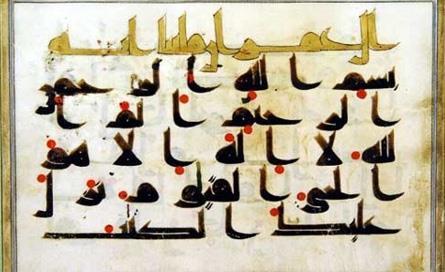 ال عمران
بسم الله الرحمن
الرحيم الم ا
لله لا اله الا هو
الحي القيوم نزل
عليك الكتب